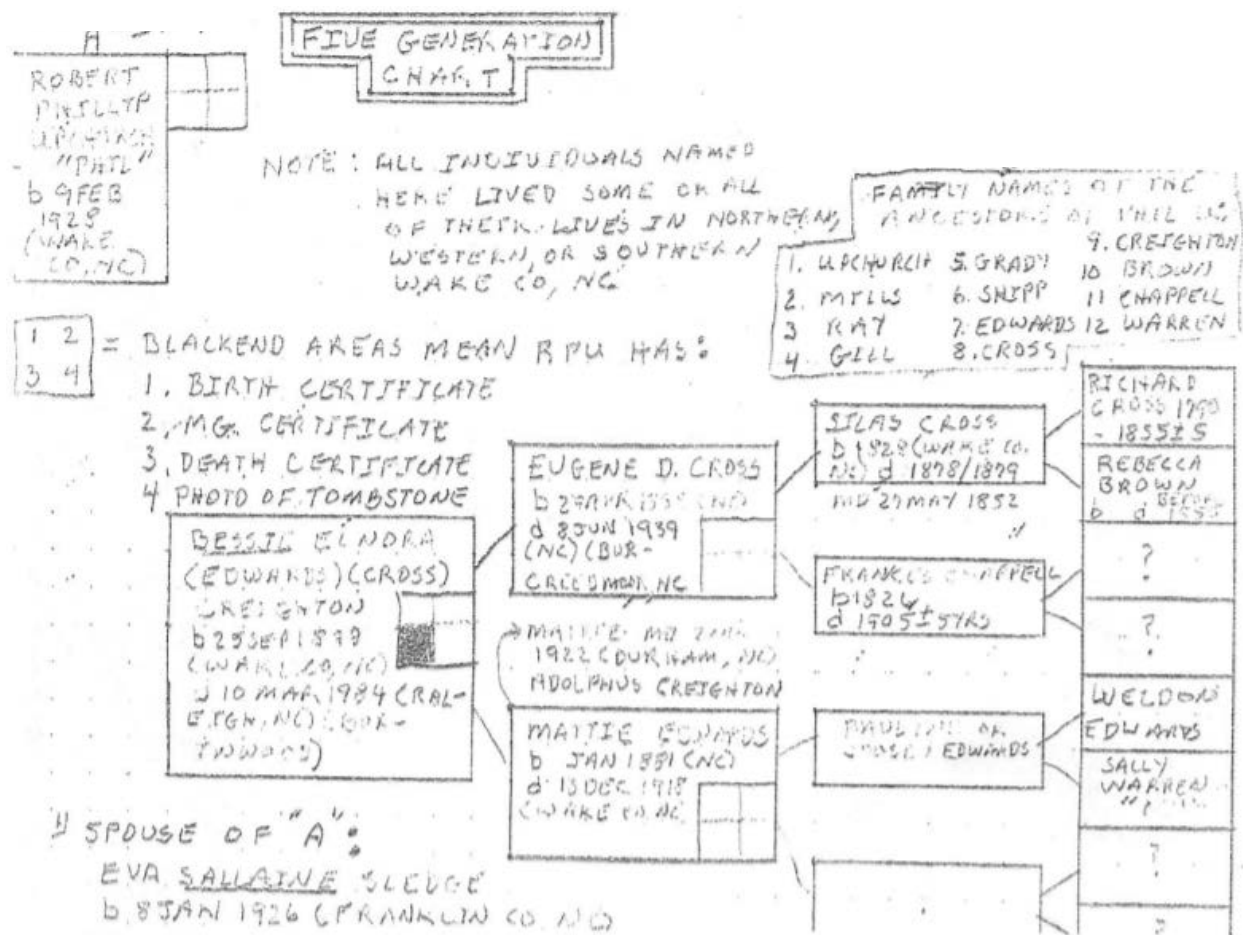 FIVE GENERATION
CHART
A
ROBERT
PHILLIP
UPCHURCH
"PHIL"
b 9 FEB
1928
(WAKE
CO, NC)
NOTE: ALL INDIVIDUALS NAMED
HERE LIVED SOME OR ALL
OF THEIR LIVES IN NORTHERN,
WESTERN, OR SOUTHERN
WAKE CO, NC
FAMILY NAMES OF THE
ANCESTORS OF PHIL
1. UPCHURCH 5. GRADY 9. CREIGHTON
2. MILLS 6. SHIPP 10 BROWN
3 RAY 7. EDWARDS 11 CHAPPELL
4 GILL 8. CROSS 12 WARREN
1 2
3 4
= BLACKEND AREAS MEAN RPU HAS:
1. BIRTH CERTIFICATE
2. MG. CERTIFICATE
3. DEATH CERTIFICATE
4 PHOTO OF TOMBSTONE
BESSIE ELNORA
(EDWARDS)(CROSS)
CREIGHTON
b 25 SEP
(WAKE CO, NC)
d 10 MAR 1984 (RAL-
EIGH, NC)
EUGENE D. CROSS
(NC)
d 8 JUN 1939
(NC) (BUR-
CREEDMOOR, NC
MATTIE MD
1922 (DURHAM, NC)
ADOLPHUS CREIGHTON
MATTIE EDWARDS
b JAN 1881 (NC)
d 13 DEC 1918
(WAKE CO. NC
SILAS CROSS
b 1828 (WAKE CO.
NC) d 1878/1879
MD 27 MAY 1852
FRANCES CHAPPELL
b 1826
d 1905 ± 5 YRS
EDWARDS
RICHARD
CROSS
- 1855 ± 5
REBECCA
BROWN
b d
?
?
WELDON
EDWARDS
SALLY
WARREN
?
?
SPOUSE OF "A":
EVA SALLAINE SLEDGE
b. 8 JAN 1926 (FRANKLIN CO. NC)